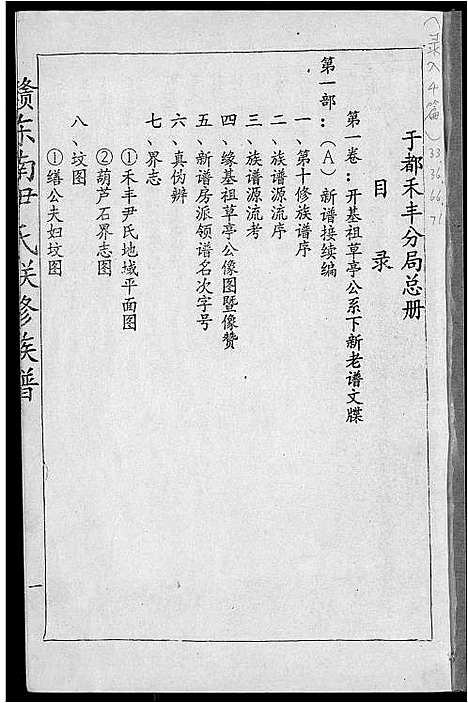 (录入4篇)33.36.66.71
于都禾丰分局总册
目录
第一卷:开基祖草亭公系下新老谱文牒
第一部:(A)新谱接续编
一、第十修族谱序
二、族谱源流序
三、族谱源流考
四、缘基祖草亭公像图暨像赞
五、新谱房派领谱名次字号
六、真伪辨
七、界志
①禾丰尹氏地域平面图
②葫芦石界志图
八、坟图
①缮公夫妇坟图
赣东南尹氏联修族谱
一